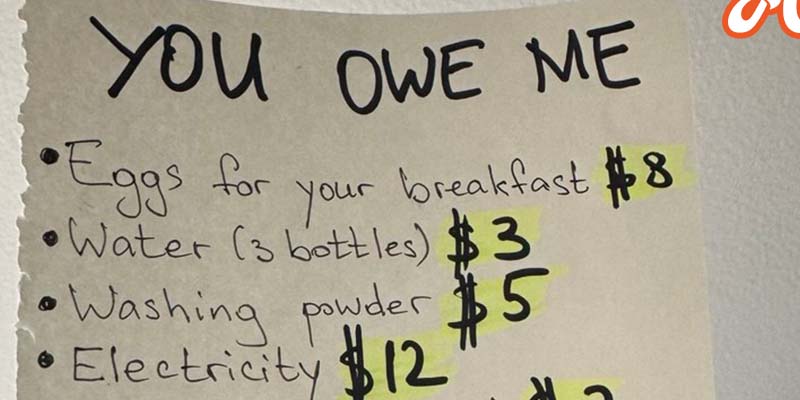 YOU OWE ME
• Eggs for your breakfast $8
• Water (3 bottles) $3
• Washing powder $5
• Electricity $12
$